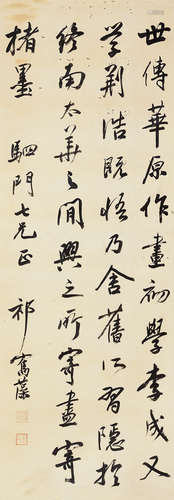 世傳華原作畫初學李成又
学荆浩既悟乃舍舊所習隱於
終南太華之間興之所寄畫寄
楮墨 駟門七兄正 祁寯藻